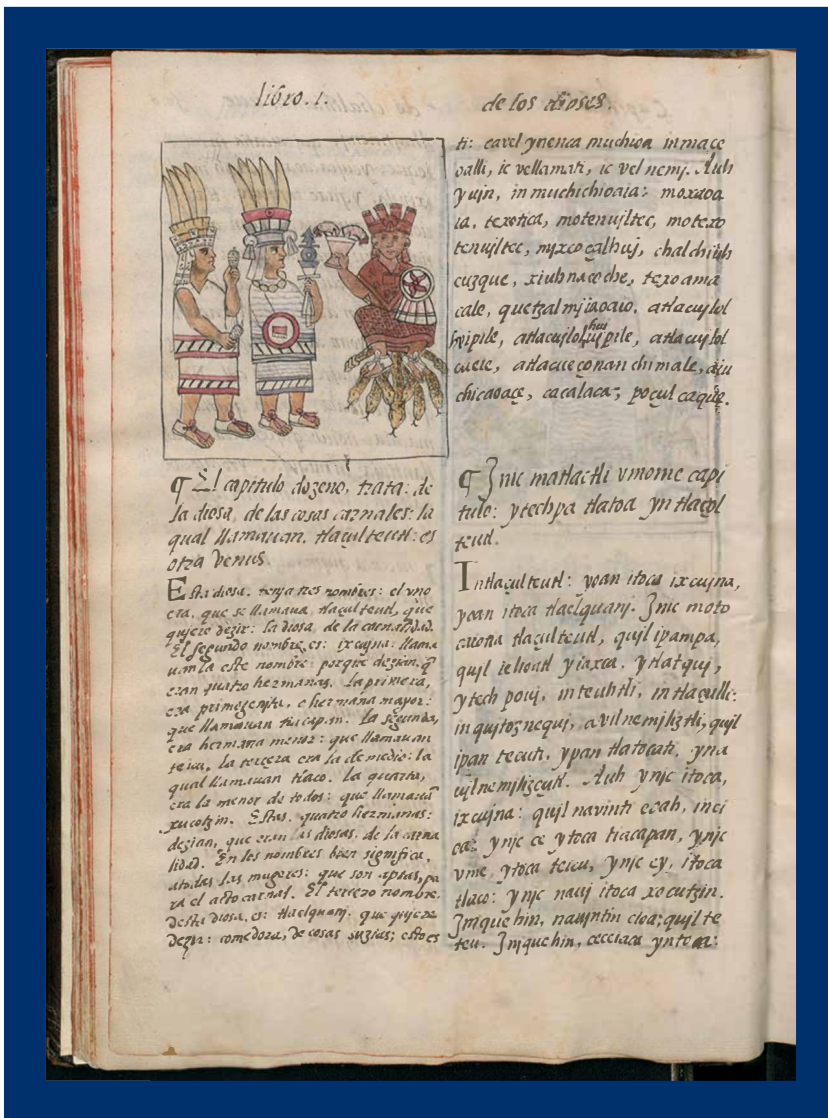 libro. 1.
de los dioses.
¶ El capitulo dozeno, trata: de
la diosa, de las cosas carnales: la
qual llamauan, tlaçulteutl: es
otra Venus.
Esta diosa, tenja tres nombres: el vno
era, que se llamaua, tlaçulteutl, que
qujere dezir: la diosa, de la carnalidad.
El segundo nombre, es: ixcujna: llama
uanla este nombre: porque dezian, q̃
eran quatro hermanas. La primera,
era primogenita, e hermana mayor:
que llamauan tiacapan. La segunda,
era hermana menor: que llamauan
teicu. la tercera era la de medio: la
qual llamauan tlaco. la quarta,
era la menor de todos: que llamauã
xucotzin. Estas, quatro hermanas:
dezian, que eran las diosas, de la carna
lidad. En los nombres bien significa,
atodas las mugeres: que son aptas, pa
ra el acto carnal. El tercero nombre,
desta diosa, es: tlaelquanj: que qujere
dezir: comedora, de cosas suzias; esto es
ti: ca vel ynenca muchioa in maçe
oalli, ic vellamati, ic vel nemj. Auh
yujn, in muchichioaia: moxaoa
ia, texotica, motenujltec, motexo
tenujltec, mjxcoçalhuj, chalchiuh
cuzque, xiuhnacoche, texoama
cale, quetzalmjiaoaio, atlacujlol
hvipile, atlacujlolhujpile, atlacujlol
cueie, atlacueçonan chimale, aiju
chicaoaçe, cacalaca; poçulcaque.
¶ Jnic matlactli vmome capi
tulo: ytechpa tlatoa yn tlaçol
teutl.
Jn tlaçulteutl: yoan itoca ixcujna,
yoan itoca tlaelquanj. Jnic moto
caiotia tlaçulteutl, quil ipampa,
quil iehoatl yiaxca, ytlatquj,
ytech pouj, in teuhtli, in tlaçulli:
in qujtoznequj, avilnemjliztli, quil
ipan tecuti, ypan tlatocati, yna
ujlnemjlizçutl. Auh ynjc itoca,
ixcujna: quil navinti ecah, inci
ca: ynjc ce ytoca tiacapan, ynjc
vme, ytoca teicu, ynjc ey, itoca
tlaco: ynjc nauj itoca xocutzin.
Jnjque hin, nauintin cioa; quil te
teu. Jnjque hin, ceceiaca yntoca: